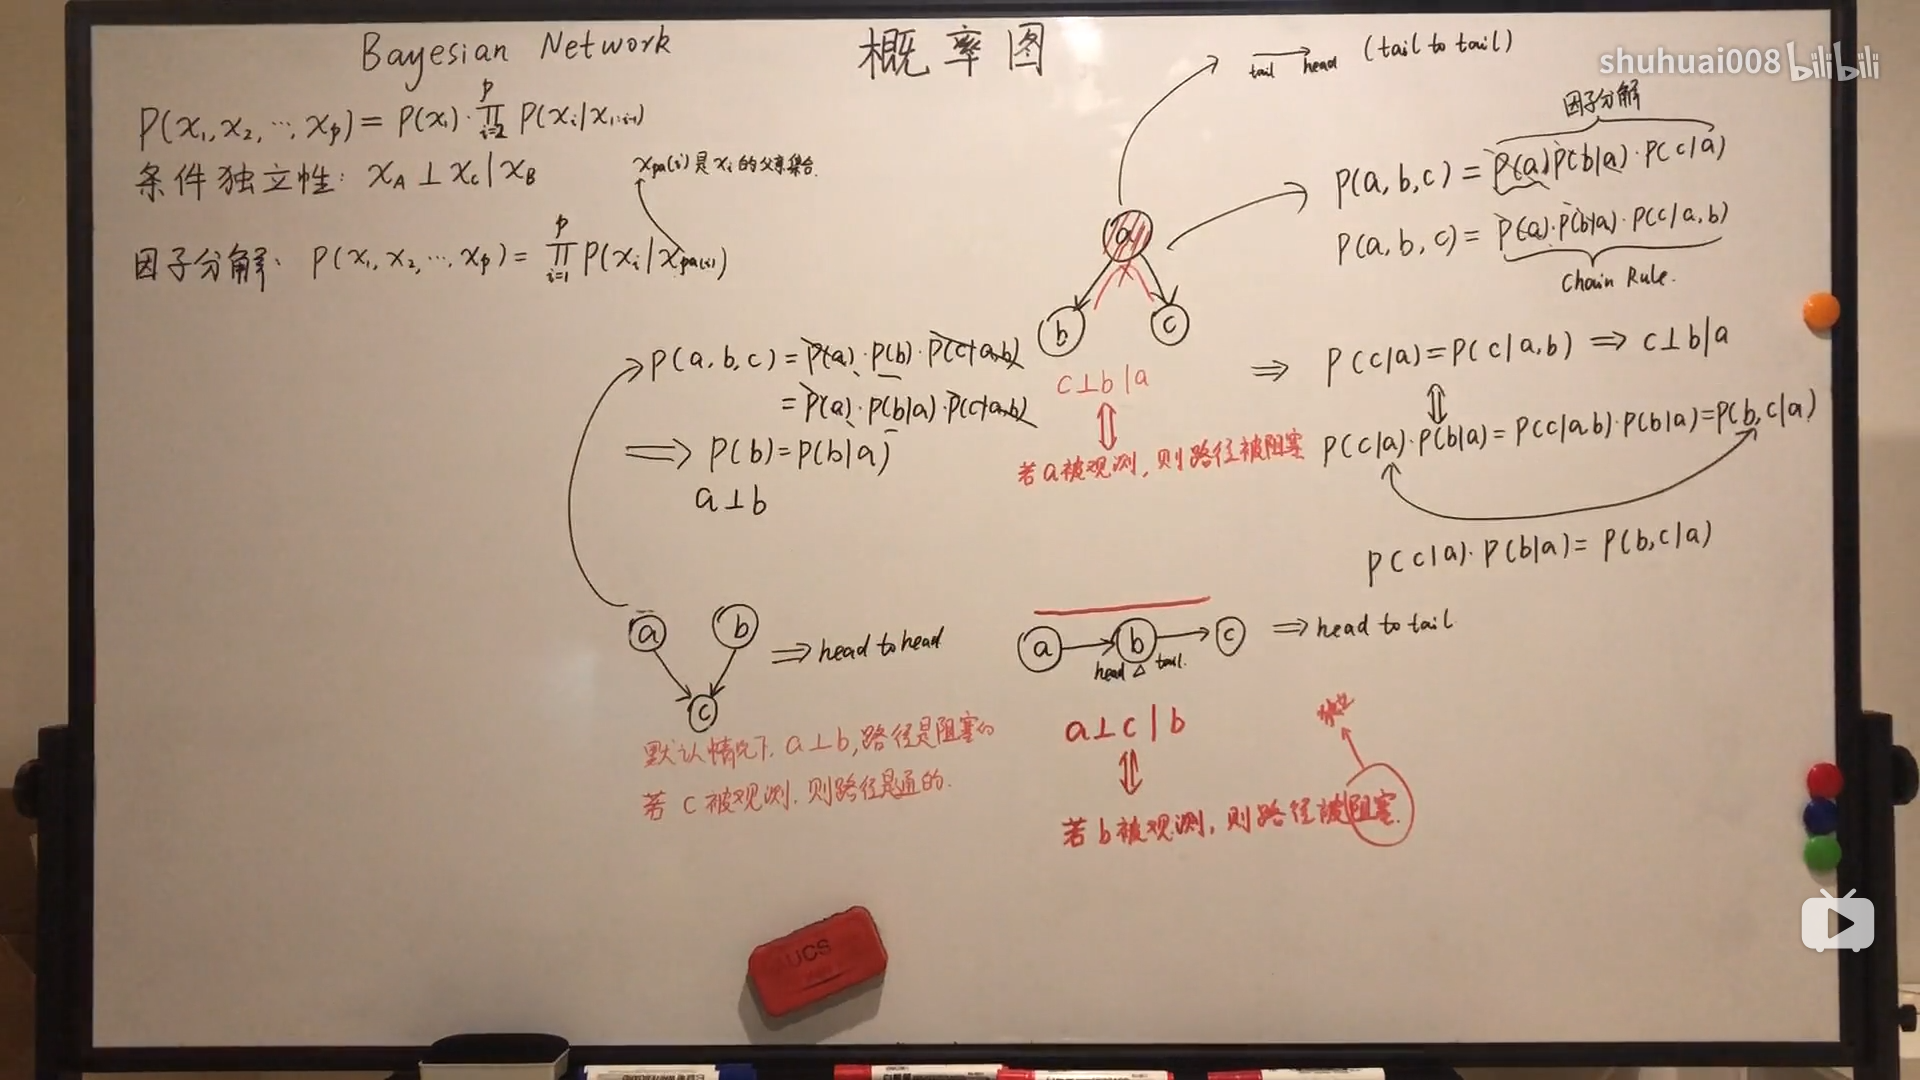 Bayesian Network
概率图
shuhuai008 bilibili
P(x₁, x₂, ⋯, xₚ) = P(x₁) · ∏ᵢ₌₂ᵖ P(xᵢ | x₁:ᵢ₋₁)
条件独立性: x_A ⊥ x_C | x_B
x_pa(i) 是 xᵢ 的父亲集合.
因子分解: P(x₁, x₂, ⋯, xₚ) = ∏ᵢ₌₁ᵖ P(xᵢ | x_pa(i))
tail → head (tail to tail)
因子分解
P(a, b, c) = P(a) P(b|a) · P(c|a)
P(a, b, c) = P(a) · P(b|a) · P(c|a, b)
Chain Rule.
a
b c
c ⊥ b | a
⇕
若 a 被观测, 则路径被阻塞
⇒ P(c|a) = P(c|a, b) ⇒ c ⊥ b | a
⇕
P(c|a) · P(b|a) = P(c|a b) · P(b|a) = P(b, c|a)
P(c|a) · P(b|a) = P(b, c|a)
P(a, b, c) = P(a) · P(b) · P(c|a, b)
= P(a) · P(b|a) · P(c|a, b)
⇒ P(b) = P(b|a)
a ⊥ b
a b ⇒ head to head
c
默认情况下, a ⊥ b, 路径是阻塞的
若 c 被观测, 则路径是通的.
a → b → c ⇒ head to tail
head △ tail.
a ⊥ c | b
⇕
独立
若 b 被观测, 则路径被阻塞.
UCS